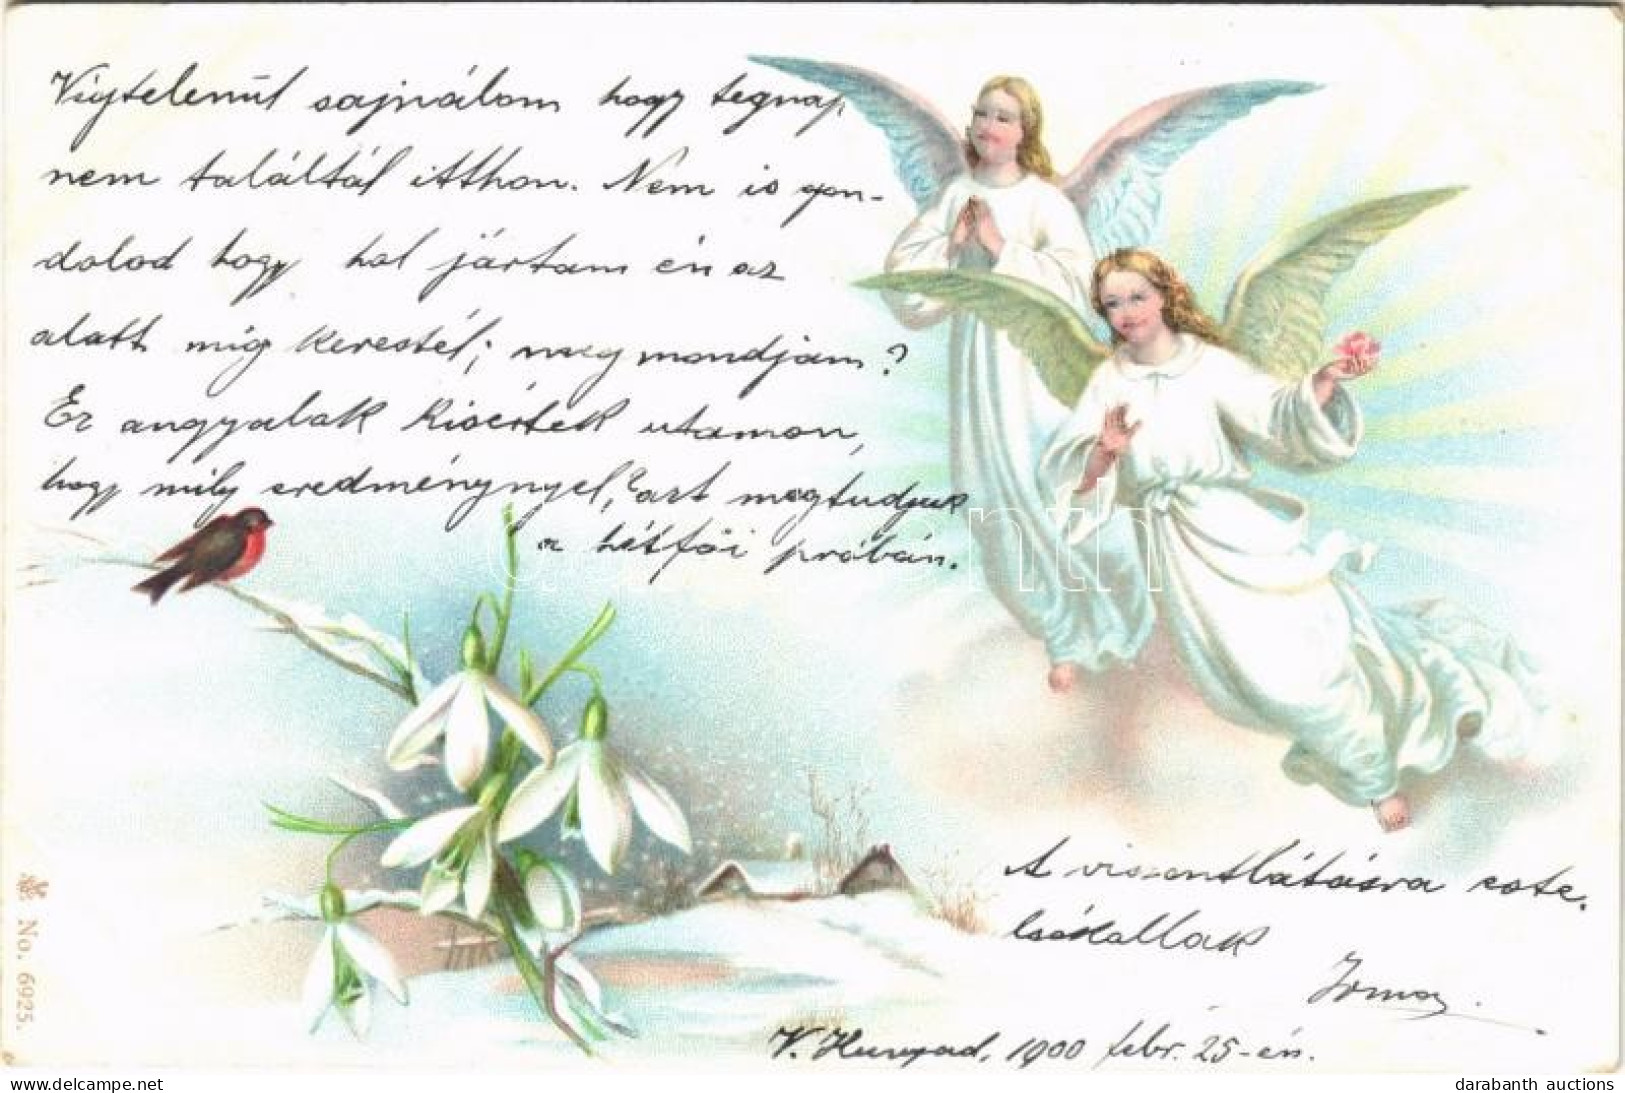 Végtelenűl sajnálom hogy tegnap
nem találtál itthon. Nem is gon-
dolod hogy hol jártam én az
alatt míg kerestél; meg mondjam?
Ez angyalok kisértek utamon,
hogy mily eredménynyel, ezt megtudjuk
a hétfői próbán.
A viszontlátásra este.
Csókollak
Irma.
V. Hunyad, 1900 febr. 25-én.
No. 6925.
darabanth auctions